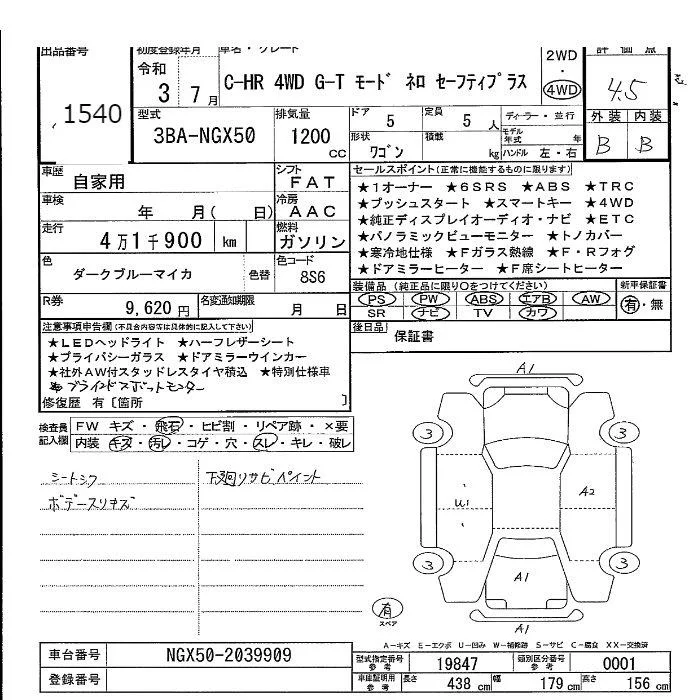 出品番号
1540
初度登録年月
令和
3 7月
車名・グレード
C-HR 4WD G-T モード ネロ セーフティプラス
2WD
・
4WD
評価点
4.5
外装 内装
B B
型式
3BA-NGX50
排気量
1200
CC
ドア
5
定員
5 人
形状
ワゴン
積載
kg
ディーラー・並行
モデル年式 年
ハンドル 左・右
車歴
自家用
シフト
FAT
車検
年 月( 日)
冷房
AAC
走行
4万1千900 km
燃料
ガソリン
色
ダークブルーマイカ
色替
色コード
8S6
R券
9,620円
名変通知期限
月 日
セールスポイント(正常に機能するものに限ります)
★1オーナー ★6SRS ★ABS ★TRC
★プッシュスタート ★スマートキー ★4WD
★純正ディスプレイオーディオ・ナビ ★ETC
★パノラミックビューモニター ★トノカバー
★寒冷地仕様 ★Fガラス熱線 ★F・Rフォグ
★ドアミラーヒーター ★F席シートヒーター
装備品(純正品に限り○をつけてください)
PS PW ABS エアB AW
SR ナビ TV カワ
新車保証書
有・無
後日品
保証書
注意事項申告欄(不具合内容等は具体的に記入して下さい)
★LEDヘッドライト ★ハーフレザーシート
★プライバシーガラス ★ドアミラーウインカー
★社外AW付スタッドレスタイヤ積込 ★特別仕様車
★ブラインドスポットモニター
修復歴 有〔箇所 〕
検査員記入欄
FW キズ・飛石・ヒビ割・リペア跡・×要
内装 キズ・汚レ・コゲ・穴・スレ・キレ・破レ
シートシワ
ボデースリキズ
下廻リサビペイント
A1
3 3
U1
A2
3 3
A1
A1
有
スペア
A-キズ E-エクボ U-凹み W-補修跡 S-サビ C-腐食 XX-交換済
車台番号
NGX50-2039909
登録番号
型式指定番号
参考
19847
類別区分番号
参考
0001
車庫証明用
参考
長さ 438 cm 幅 179 cm 高さ 156 cm